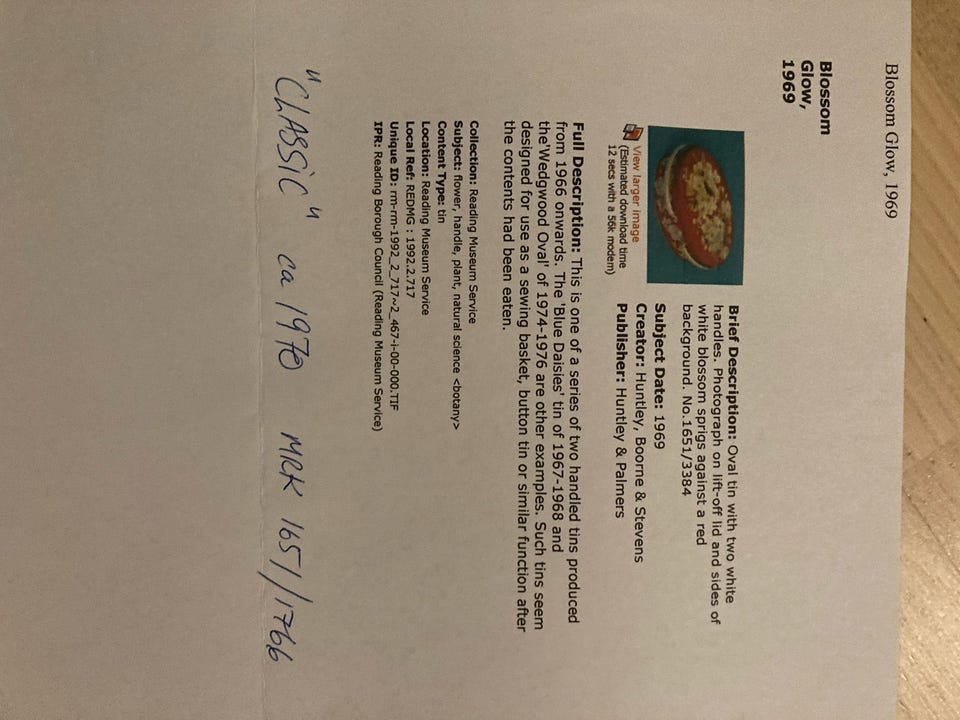 Blossom Glow, 1969
Blossom
Glow,
1969
View larger image
(Estimated download time
12 secs with a 56k modem)
Brief Description: Oval tin with two white
handles. Photograph on lift-off lid and sides of
white blossom sprigs against a red
background. No.1651/3384
Subject Date: 1969
Creator: Huntley, Boorne & Stevens
Publisher: Huntley & Palmers
Full Description: This is one of a series of two handled tins produced
from 1966 onwards. The 'Blue Daisies' tin of 1967-1968 and
the'Wedgwood Oval' of 1974-1976 are other examples. Such tins seem
designed for use as a sewing basket, button tin or similar function after
the contents had been eaten.
Collection: Reading Museum Service
Subject: flower, handle, plant, natural science <botany>
Content Type: tin
Location: Reading Museum Service
Local Ref: REDMG : 1992.2.717
Unique ID: rm-rm-1992_2_717~2_467-i-00-000.TIF
IPR: Reading Borough Council (Reading Museum Service)
"CLASSIC" ca 1970 MRK 1651/1766